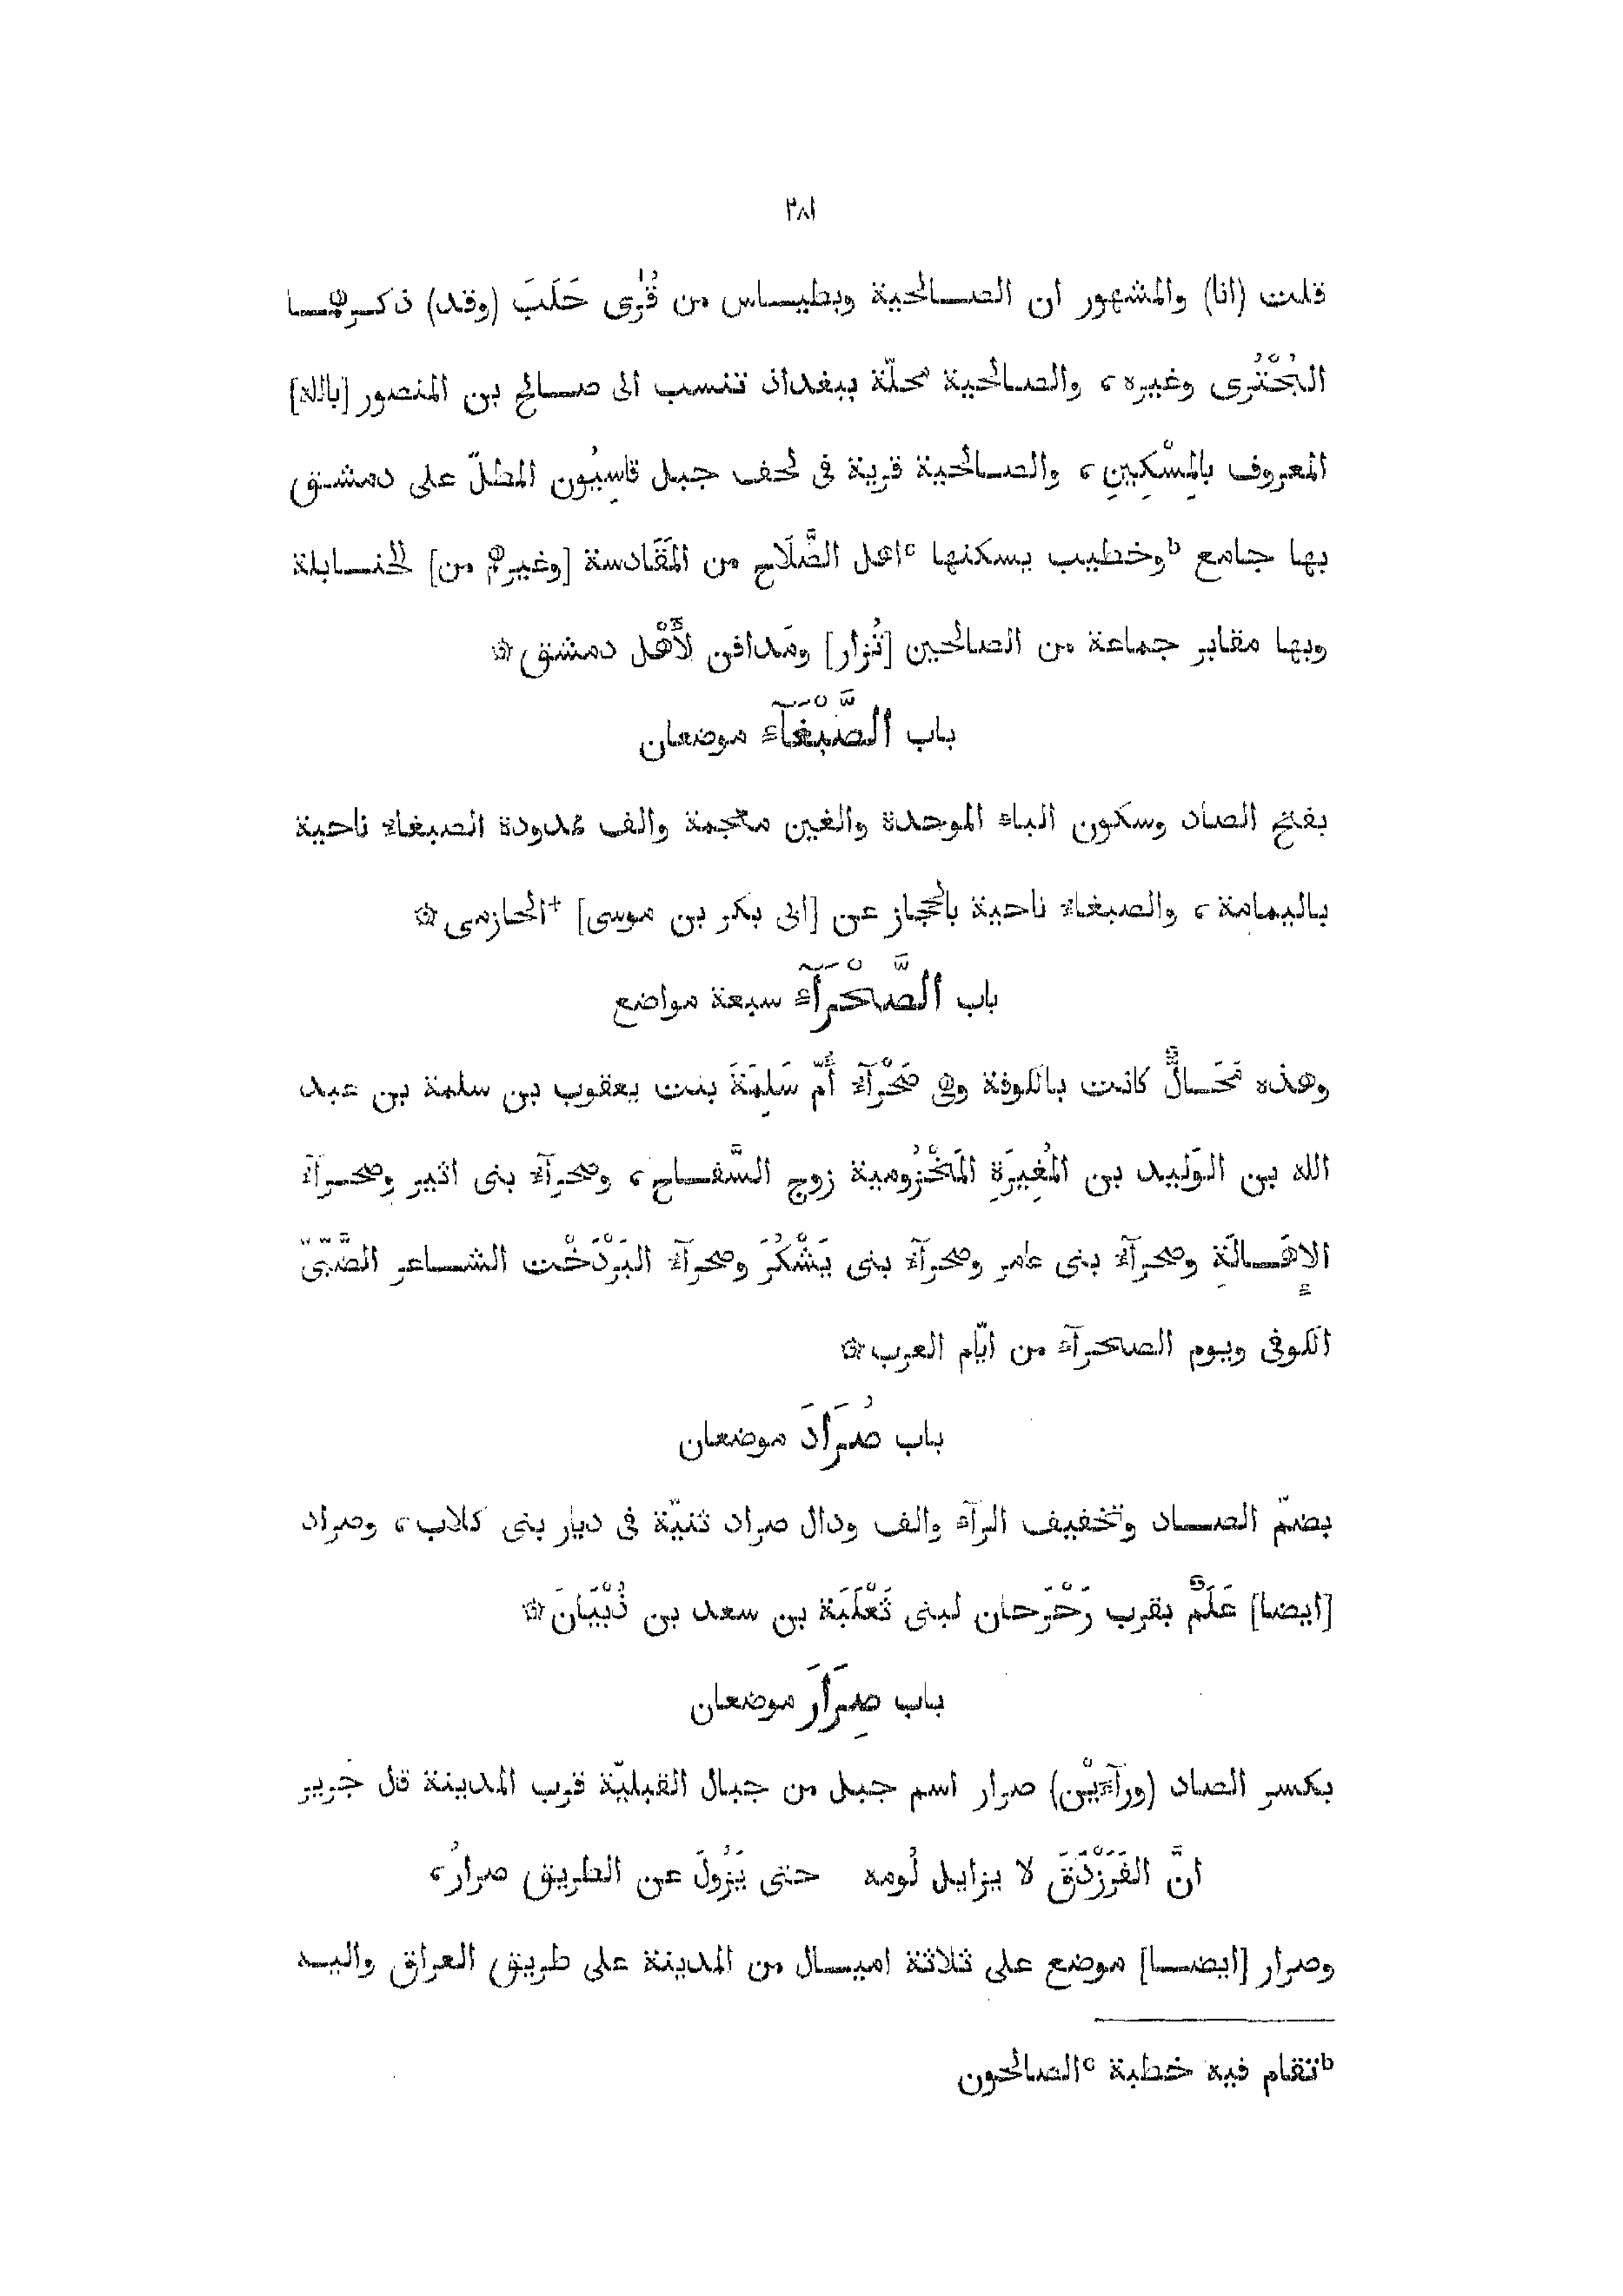 ٢٨١
قلت (انا) والمشهور ان الصالحية وبطياس من قُرٰى حَلَبَ (وقد) ذكرهما
البُحْتُرى وغيره، والصالحية محلّة ببغداد تنسب الى صالح بن المنصور [بالله]
المعروف بالمِسْكِينِ، والصالحية قرية فى لحف جبل قاسِيُون المطلّ على دمشق
بها جامع ᵇوخطيب يسكنها ᶜاهل الصَّلَاح من المَقَادسة [وغيرهم من] الحنابلة
وبها مقابر جماعة من الصالحين [تُزار] ومَدافن لأَهْل دمشق ۞
باب الصَّبْغَآء موضعان
بفتح الصاد وسكون الباء الموحدة والغين معجمة والف ممدودة الصبغاء ناحية
باليمامة، والصبغاء ناحية بالحجاز عن [ابى بكر بن موسى] †الحازمى ۞
باب الصَّحْرَآء سبعة مواضع
وهذه مَحَالٌّ كانت بالكوفة وهى صَحْرآء أُمّ سَلِمَةَ بنت يعقوب بن سلمة بن عبد
الله بن الوَليد بن المُغِيرَةِ المَخْزُومية زوج السَّفاح، وصحرآء بنى اثير وصحرآء
الإِهَالَةِ وصحرآء بنى عامر وصحرآء بنى يَشْكُرَ وصحرآء البَرْدَخْت الشاعر الضَّبّىّ
الكوفى ويوم الصحرآء من ايّام العرب ۞
باب صُرَادَ موضعان
بضمّ الصاد وتخفيف الرآء والف ودال صراد ثنيّة فى ديار بنى كلاب، وصراد
[ايضا] عَلَمٌ بقرب رَحْرَحان لبنى ثَعْلَبَة بن سعد بن ذُبْيَانَ ۞
باب صِرَارَ موضعان
بكسر الصاد (ورآءَيْن) صرار اسم جبل من جبال القبليّة قرب المدينة قال جَرير
انَّ الفَرَزْدَقَ لا يزايل لُومه حتى يَزُولَ عن الطريق صرارُ،
وصرار [ايضا] موضع على ثلاثة اميال من المدينة على طريق العراق واليه
ᵇتقام فيه خطبة ᶜالصالحون